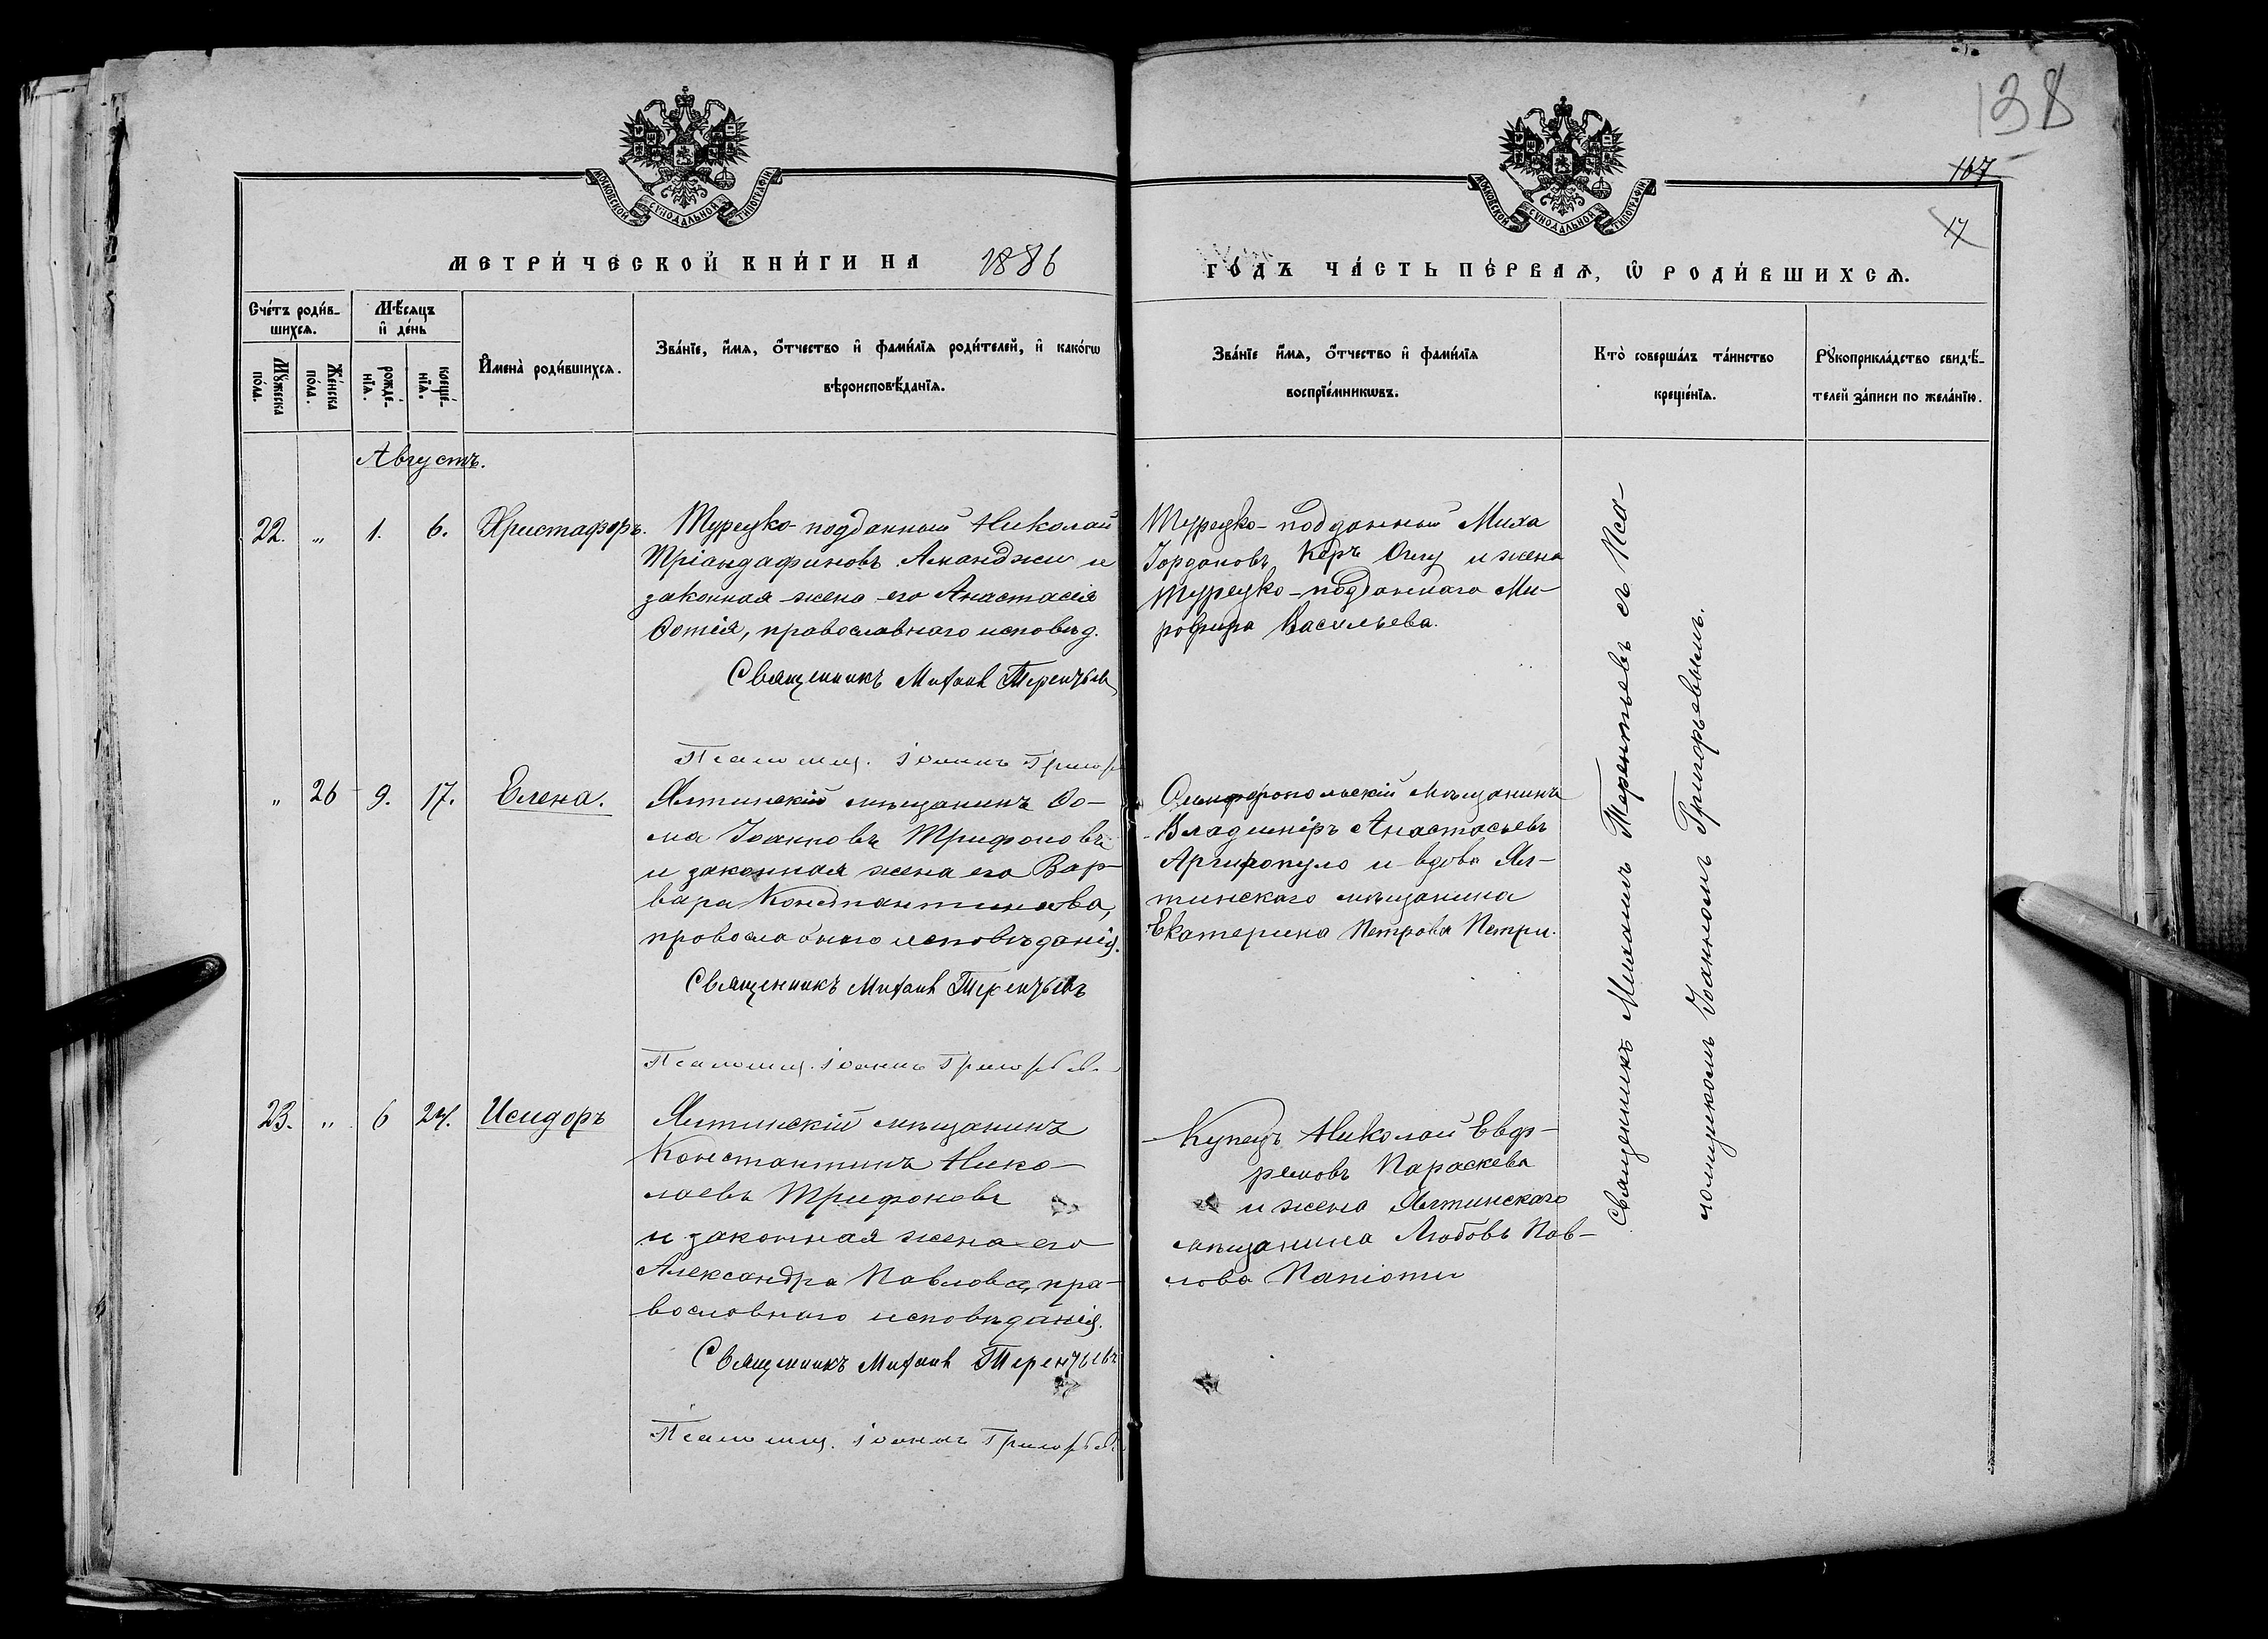 138
167
17
МОСКОВСКОЙ СУНОДАЛЬНОЙ ТИПОГРАФІИ
МОСКОВСКОЙ СУНОДАЛЬНОЙ ТИПОГРАФІИ
МЕТРИ́ЧЕСКОЙ КНИ́ГИ НА 1886
ГО́ДЪ ЧА́СТЬ ПЕ́РВАѦ, Ѡ РОДИ́ВШИХСѦ.
Сче́тъ роди́в-
шихсѧ.
Мꙋ́жеска
по́ла.
Же́нска
по́ла.
Мѣ́сѧцъ
и҆ де́нь
рожде́-
нїѧ.
креще́-
нїѧ.
И҆мена̀ роди́вшихсѧ.
Зва́нїе, и҆́мѧ, ѻ҆́тчество и҆ фами́лїѧ роди́телей, и҆ како́гѡ
вѣроисповѣ́данїѧ.
Зва́нїе и҆́мѧ, ѻ҆́тчество и҆ фами́лїѧ
воспрїе́мникѡвъ.
Кто̀ соверша́лъ та́инство
креще́нїѧ.
Рꙋкоприкла́дство свидѣ́-
телей за́писи по жела́нїю.
Августъ.
22. „ 1. 6. Христафоръ.
Турецко-подданный Николай
Тріандафиловъ Аманджи и
законная жена его Анастасія
Фотія, православнаго исповѣд.
Священникъ Михаилъ Терентьевъ
Псаломщ. Іоаннъ Григорь
Турецко-подданный Миха
Іордановъ Керъ Оглу и жена
Турецко-подданнаго Ми-
рофира Васильева.
„ 26 9. 17. Елена.
Ялтинскій мѣщанинъ Ѳо-
ма Іоанновъ Трифоновъ
и законная жена его Вар-
вара Константинова,
православнаго исповѣданія.
Священникъ Михаилъ Терентьевъ
Псаломщ. Іоаннъ Григорьев
Симферопольскій мѣщанинъ
Владиміръ Анастасьевъ
Аргиропуло и вдова Ял-
тинскаго мѣщанина
Екатерина Петрова Петри.
23. „ 6 24. Исидоръ
Ялтинскій мѣщанинъ
Константинъ Нико-
лаевъ Трифоновъ
и законная жена его
Александра Павлова, пра-
вославнаго исповѣданія.
Священникъ Михаилъ Терентьевъ
Псаломщ. Іоаннъ Григорьев
Купецъ Николай Евф-
ремовъ Параскева
и жена Ялтинскаго
мѣщанина Любовь Пав-
лова Папіоти
Священникъ Михаилъ Терентьевъ съ Пса-
ломщикомъ Іоанномъ Григорьевымъ.